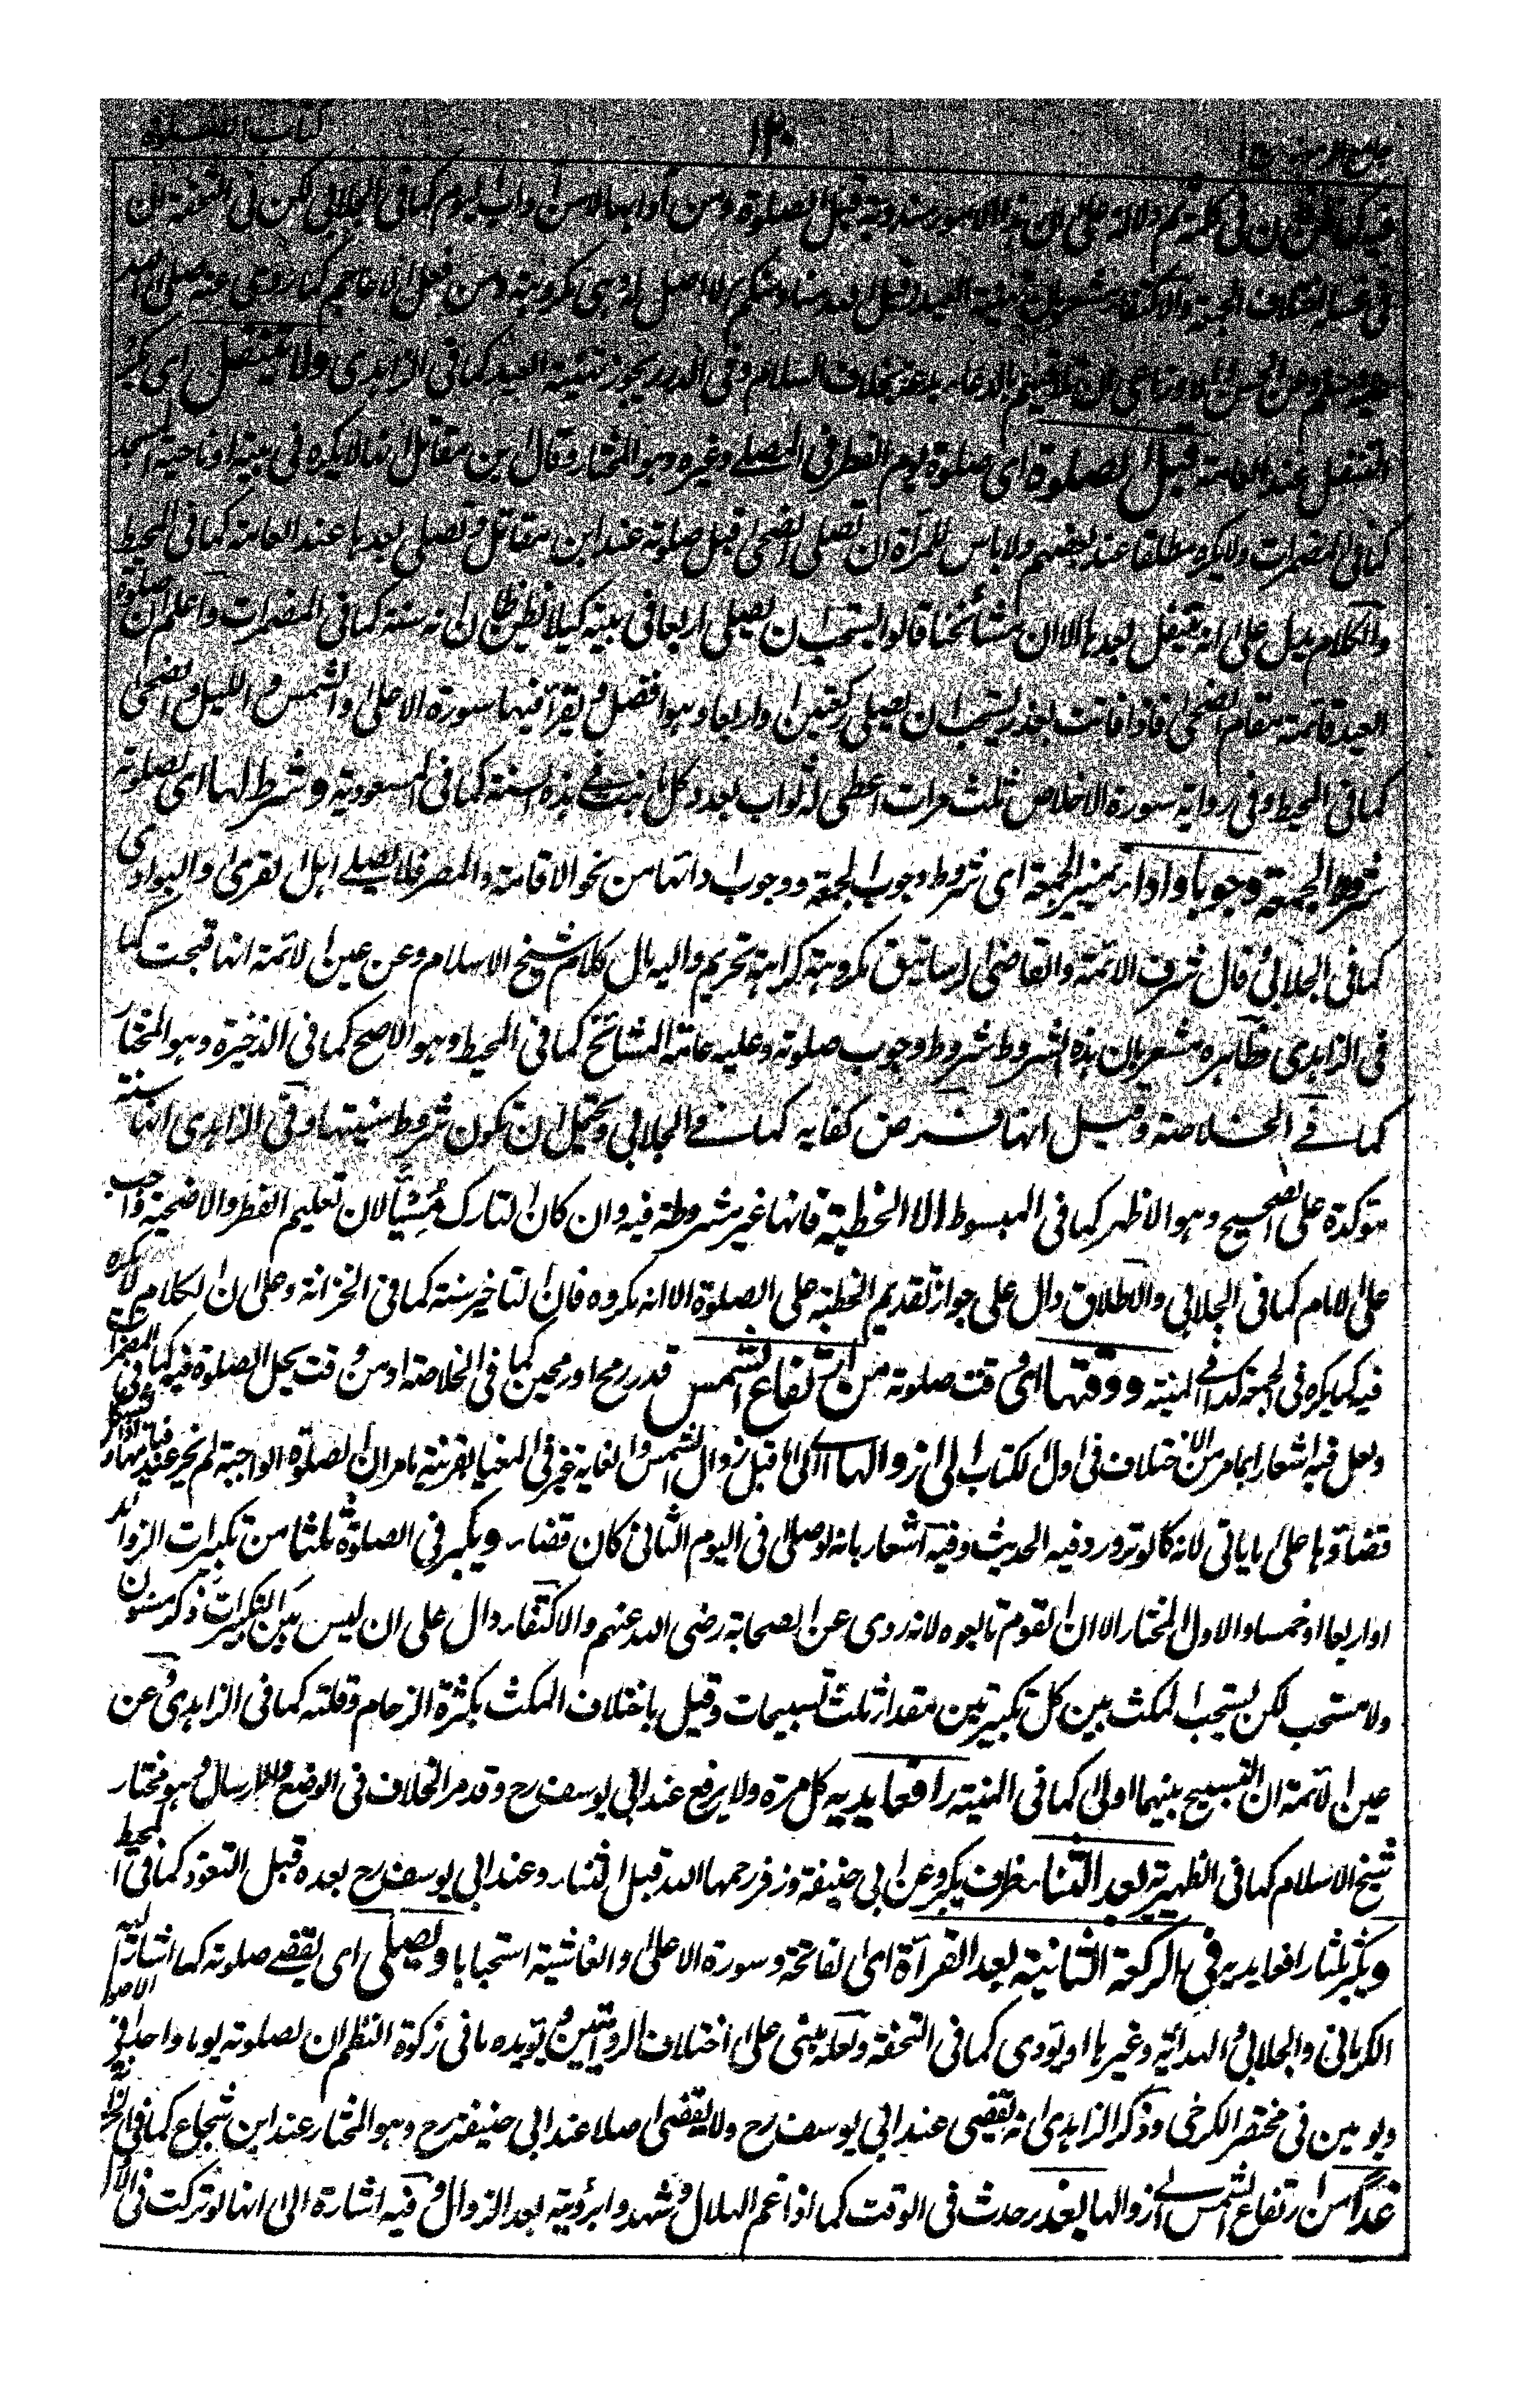 كتاب الصلوة
١٢٠
جامع الرموز
فيه كما ظن لان في كلمة ثم دلالة على ان هذه الامور مندوبة قبل الصلوة ومن آدابها لا من آداب اليوم كما في الجلابي لكن في التحفة ان
في غسله اختلاف الجمعة والاكتفاء مشعر بان تهنية العيد تقبل الله منا ومنكم لا اصل
بخلاف السلام وفي الدرر يجوز تهنية العيد كما في الزاهدي ولا يتنفل اي يكره
التنفل عند العامة قبل الصلوة اي صلوة يوم الفطر في المصلى وغيره وهو المختار وقال ابن مقاتل انه لا يكره في بيته او ناحية المسجد
كما في المضمرات ولا يكره مطلقا عند بعضهم ولا باس للمرأة ان تصلى الضحى قبل صلوته عند ابن مقاتل وتصلى بعدها عند العامة كما في المحيط
والكلام يدل على انه يتنفل بعدها الا ان مشائخنا قالوا يستحب ان يصلى اربعا في بيته كيلا يظن ظان انه سنة كما في المضمرات واعلم ان صلوة
العيد قائمة مقام الضحى فاذا فاتت بعذر يستحب ان يصلى ركعتين او اربعا وهو افضل ويقرأ فيها سورة الاعلى والشمس والليل والضحى
كما في المحيط وفي رواية سورة الاخلاص ثلث مرات اعطى له ثواب بعدد كل نبت في هذه السنة كما في المسعودية وشرط لها اى لصلوته
شروط الجمعة وجوبا واداء تمييز الجمعة اى شروط وجوب الجمعة ووجوب ادائها من نحو الاقامة والمصر فلا يصلى اهل القرى والبوادى
كما في الجلابي وقال شرف الائمة والقاضى الرساتيق مكروهة كراهة تحريم واليه مال كلام شيخ الاسلام وعن عين الائمة انها قبحت كما
في الزاهدى وظاهره مشعر بان هذه الشروط شروط وجوب صلوته وعليه عامة المشائخ كما في المحيط وهو الاصح كما في الذخيرة وهو المختار
كما في الخلاصة وقيل انها فرض كفاية كما في الجلابي ويحتمل ان تكون شروط سنيتها وفي الزاهدى انها سنة
مؤكدة على الصحيح وهو الاظهر كما في المبسوط الا الخطبة فانها غير مشروطة فيه وان كان التارك مسيئا لان تعليم الفطر والاضحية واجب
على الامام كما في الجلابي والاطلاق دال على جواز تقديم الخطبة على الصلوة الا انه مكروه فان التاخير سنة كما في الخزانة وعلى ان الكلام لا يكره
فيه كما يكره في الجمعة كذا في المنية ووقتها اى وقت صلوته من ارتفاع الشمس قدر رمح او رمحين كما في الخلاصة او من وقت يحل الصلوة فيه كما في المضمرات
ولعل فيه اشعارا بما مر من الاختلاف في اول الكتاب الى زوالها اى الى ما قبل زوال الشمس والغاية غير في المغيا بقرينة ما مر ان الصلوة الواجبة لم تجز عند قيامها
قضاؤها على ما ياتى لانه كالوتر ورد فيه الحديث وفيه اشعار بانه لو صلى في اليوم الثانى كان قضاء ويكبر في الصلوة ثلثا من تكبيرات الزوائد
او اربعا او خمسا والاول المختار الا ان القوم تابعوه لانه روى عن الصحابة رضى الله عنهم والاكتفاء دال على ان ليس بين التكبيرات ذكر مسنون
ولا مستحب لكن يستحب المكث بين كل تكبيرتين مقدار ثلث تسبيحات وقيل باختلاف المكث بكثرة الزحام وقلته كما في الزاهدى وعن
عين الائمة ان التسبيح بينهما اولى كما في المنية رافعا يديه كل مرة ولا يرفع عند ابي يوسف رح وقد مر الخلاف في الوضع والارسال وهو مختار
شيخ الاسلام كما في الظهيرية بعد الثناء ظرف يكبر وعن ابي حنيفة وزفر رحمهما الله قبل الثناء وعند ابي يوسف رح بعده قبل التعوذ كما في المحيط
ويكبر ثلثا رافعا يديه في الركعة الثانية بعد القرآة اى الفاتحة وسورة الاعلى والغاشية استحبابا ويصلى اى يقضى صلوته كما اشار اليه
الكرمانى والجلابي والهداية وغيرها او يؤدى كما في التحفة ولعله مبنى على اختلاف الروايتين ويؤيده ما في زكوة النظم ان لصلوته يوما واحدا في الاصل
ويومين في مختصر الكرخى وذكر الزاهدى انه تقضى عند ابي يوسف رح ولا يقضى اصلا عند ابي حنيفة رح وهو المختار عند ابن شجاع كما في
غدا من ارتفاع الشمس الى زوالها بعذر حدث في الوقت كما اذا غم الهلال وشهدوا برؤيته بعد الزوال وفيه اشارة الى انها لو تركت في